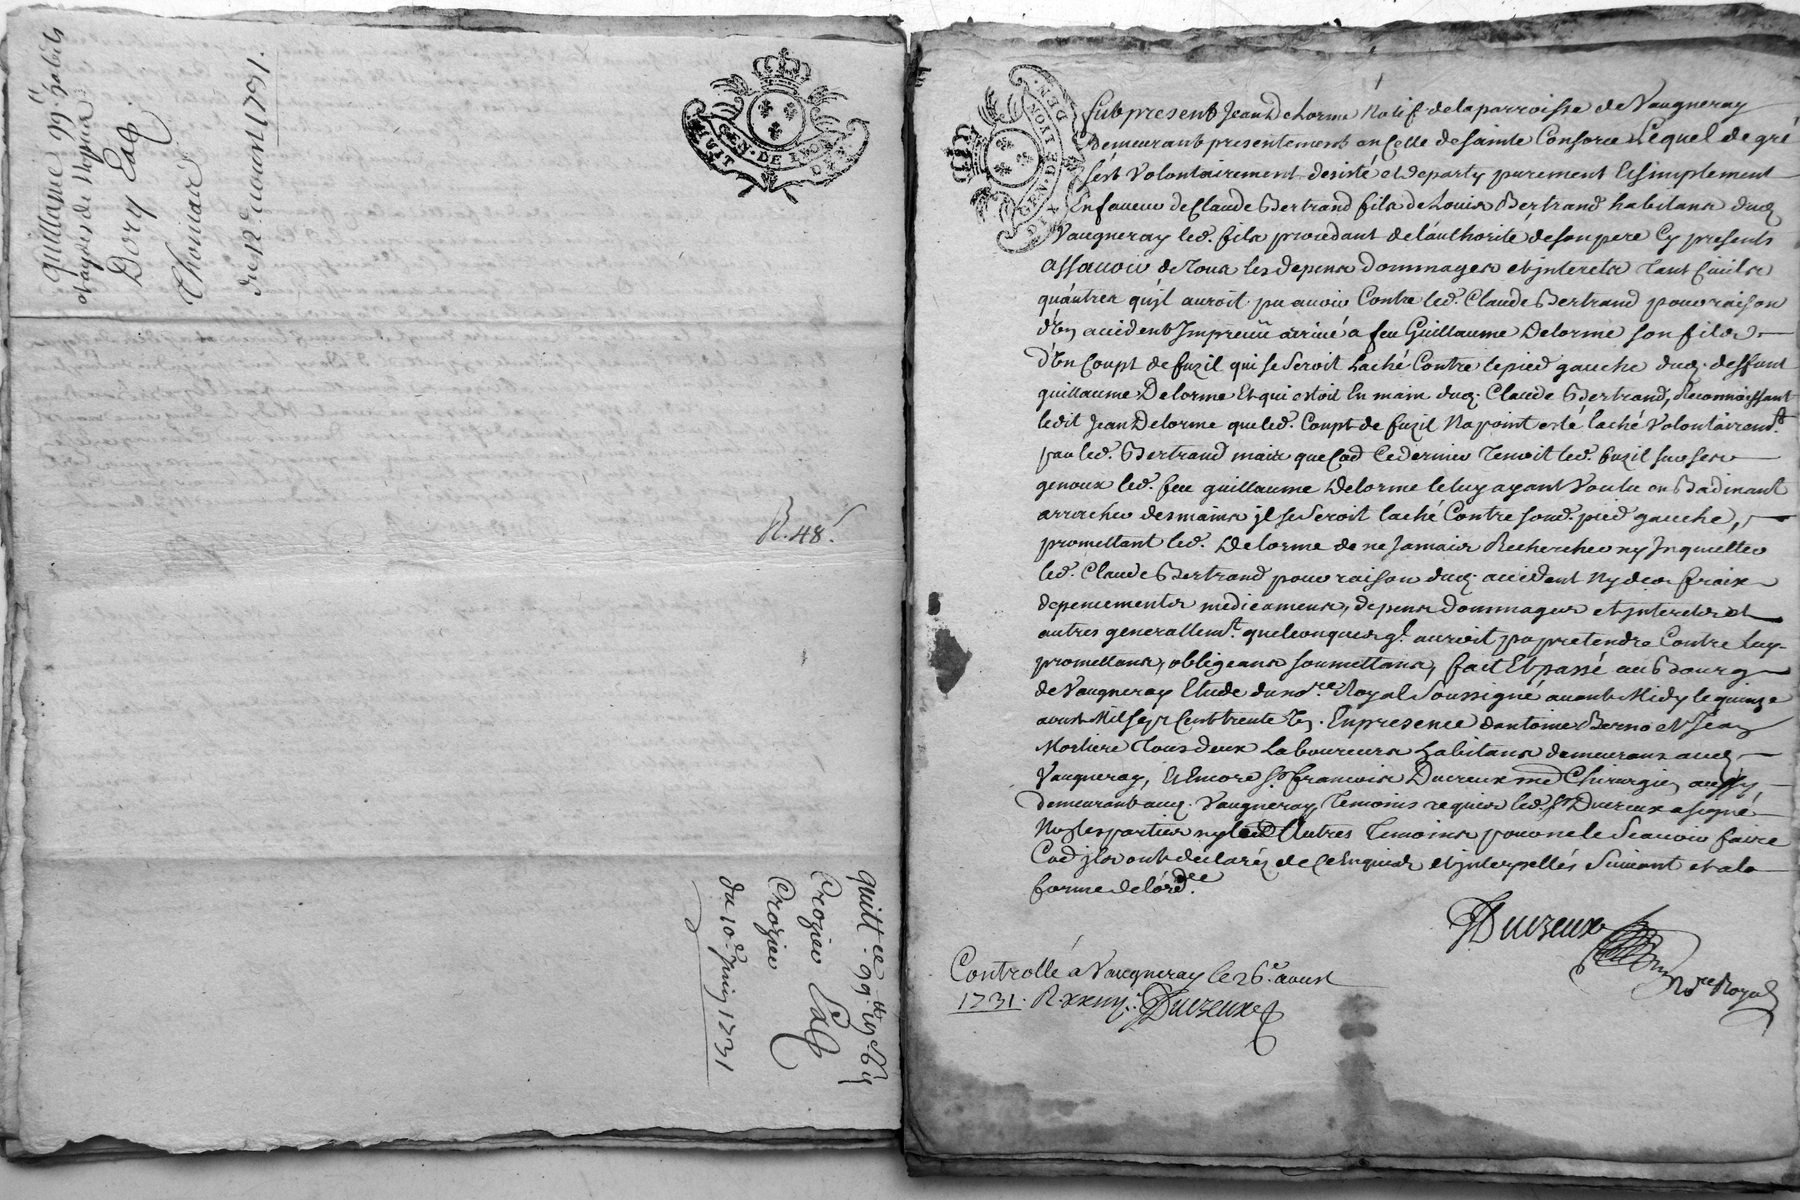 quittance 99 ## habits
et ayes de Nopces
Dory Ead.
Thomaré
du 12e. aoust 1731.
GEN. DE LYON
HUIT DEN.
R. 48s
quitt.ce 99 ## 19s 6d
Crozier Ead
Crozier
du 10e. Juin 1731
GEN. DE LYON
Fut present Jean Delorme Natif de la parroisse de Vaugneray
demeurant presentement en Celle de Sainte Consorce Lequel de gré
s'est Volontairement desisté et departy purement et simplement
En faveur de Claude Bertrand fils de Louis Bertrand habitans dud.
Vaugneray led. fils procedant de l'authorité de son pere Cy presents
assavoir de Tous les depens dommages et interets Tant Civils
qu'autres qu'jl auroit pu avoir Contre led. Claude Bertrand pour raison
d'un accident Impreuü arrivé a feu Guillaume Delorme son fils
d'un Coupt de fuzil qui se seroit Laché Contre le pied gauche dud. deffunt
guillaume Delorme Et qui estoit En main dud. Claude Bertrand, Reconnoissant
ledit Jean Delorme que led. Coupt de fuzil Na point esté laché Volontairemt.
par led. Bertrand mais que Cod. Ce dernier Tenoit led. fuzil sur ses
genoux led. feu guillaume Delorme le luy ayant Voulu en Badinant
arracher des mains jl se seroit laché Contre sond. pied gauche,
promettant led. Delorme de ne Jamais Rechercher ny Inquietter
led. Claude Bertrand pour raison dud. accident Ny des fraix
depencements medicamens, depens dommages et interets et
autres generallemt. quelconques ql. auroit pu pretendre Contre Luy
promettans, obligeans soumettans, fait Et passé au Bourg
de Vaugneray Etude du nore. Royal Soussigné avant Midy le quinze
aoust Mil sept Cent trente Un. En presence d'antoine Berno et Jean
Morliere Tous deux Laboureurs habitans demeurans aud.
Vaugneray, Et Encore Sr. francois Ducreux me. Chirurgien aussy
demeurant aud. Vaugneray Temoins requis led. Sr. Ducreux a signé
Non les parties ny les Autres Temoins pour ne le Scavoir faire
Cod. jls ont declaréz de Ce Enquis et interpellés Suivant et a la
forme de l'ordce.
FDucreux
Nore Royal
Controllé à Vaugneray le 26e. aoust
1731. R. xxiiij s. FDucreux